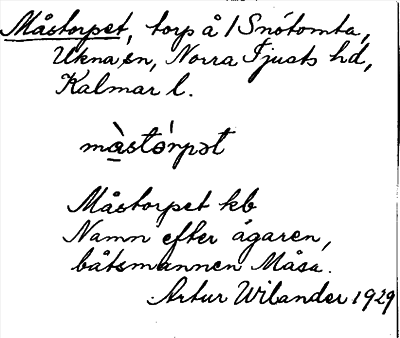 Måstorpet, torp å 1 Snötomta,
Ukna sn, Norra Tjusts hd,
Kalmar l.
màstórpət
Måstorpet kb
Namn efter ägaren,
båtsmannen Måsa.
Artur Wilander 1929